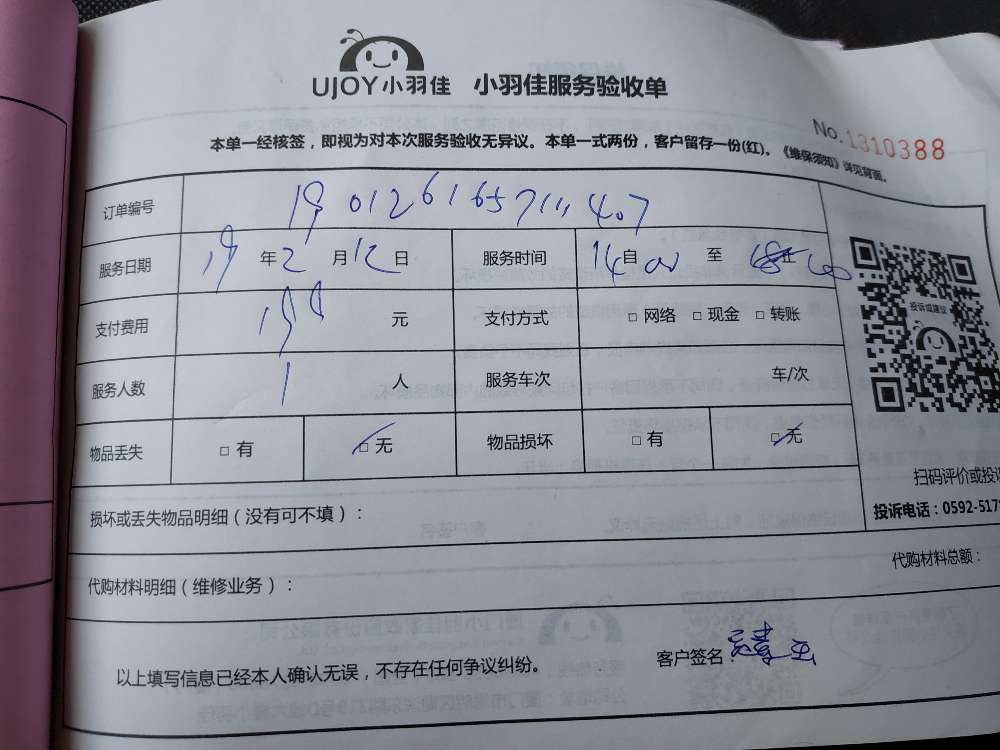 UJOY小羽佳 小羽佳服务验收单
No.1310388
本单一经核签，即视为对本次服务验收无异议。本单一式两份，客户留存一份(红)。《维保须知》详见背面。
订单编号
服务日期 19 年 2 月 12 日 服务时间 14 自 00 至
支付费用 199 元 支付方式 □ 网络 □ 现金 □ 转账
服务人数 1 人 服务车次 车/次
物品丢失 □ 有 □ 无 物品损坏 □ 有 □ 无
投诉或建议
扫码评价或投诉
投诉电话：0592-517
损坏或丢失物品明细（没有可不填）：
代购材料明细（维修业务）： 代购材料总额：
以上填写信息已经本人确认无误，不存在任何争议纠纷。 客户签名：